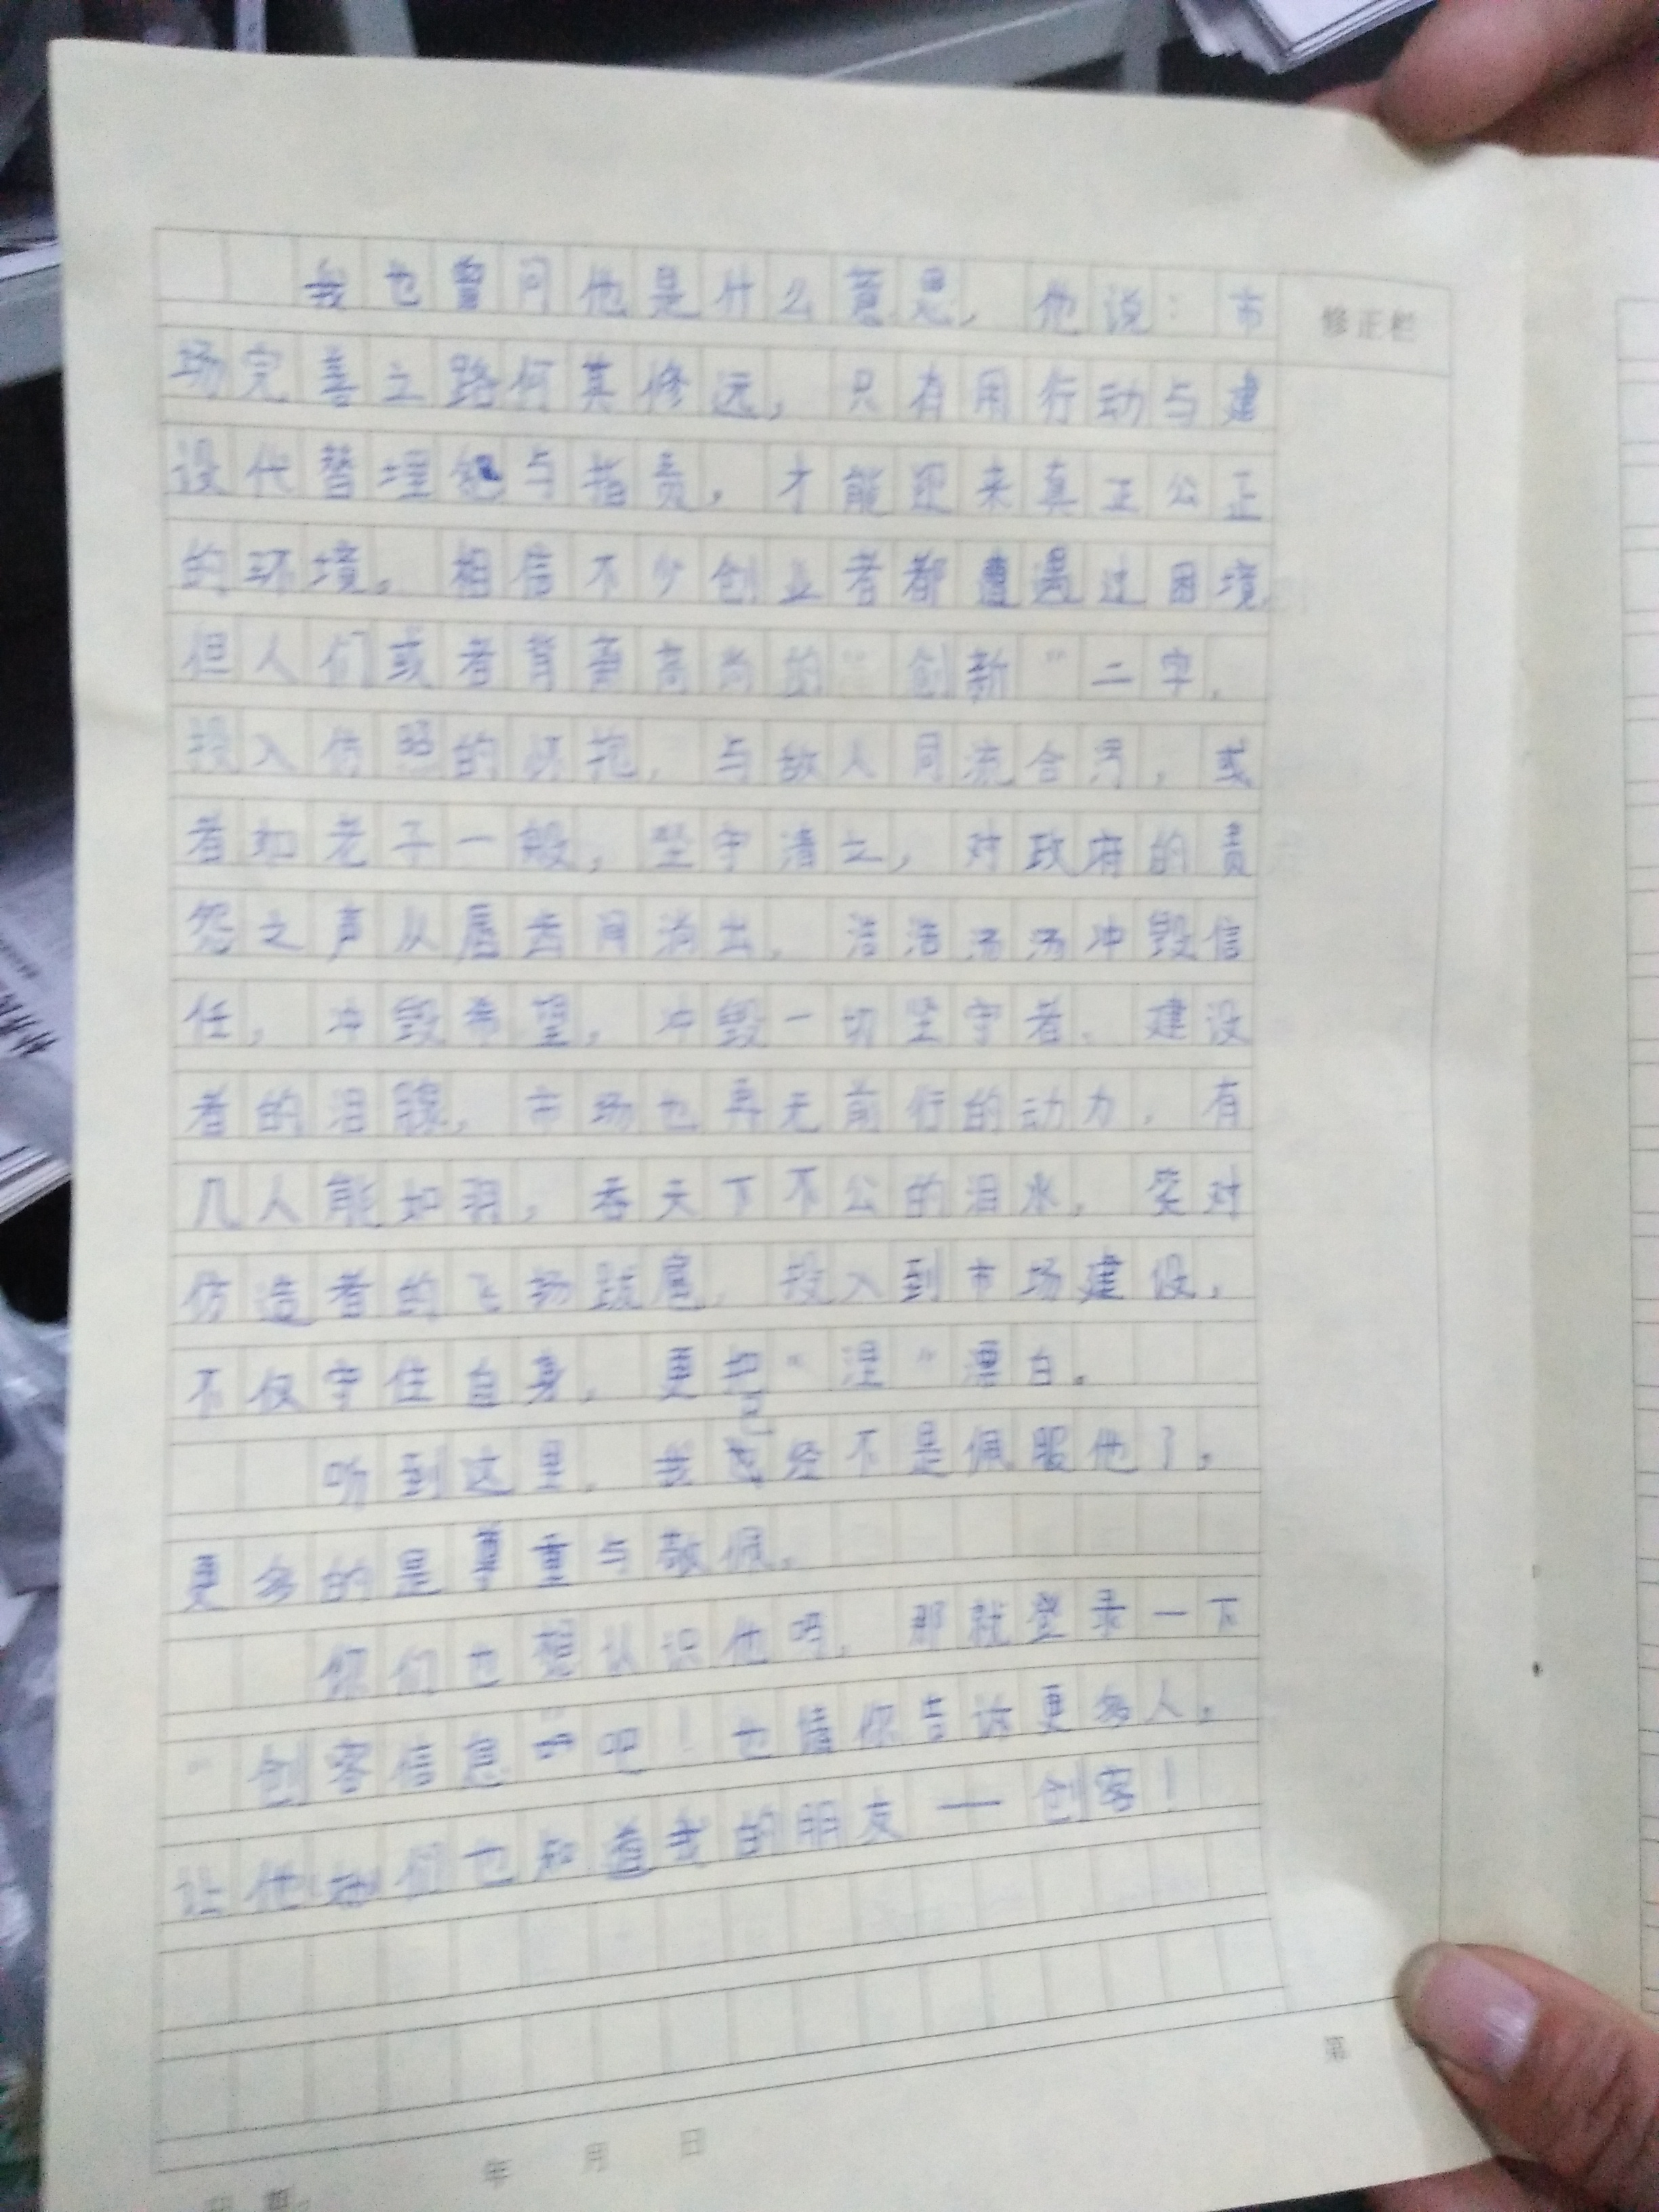 我也曾问他是什么意思，他说：市
修正栏
场完善之路何其修远，只有用行动与建
设代替埋怨与指责，才能迎来真正公正
的环境。相信不少创业者都遭遇过困境
但人们或者背弃高尚的“创新”二字，
投入仿照的怀抱，与敌人同流合污，或
者如老子一般，坚守清之，对政府的责
怨之声从唇齿间淌出，浩浩汤汤冲毁信
任，冲毁希望，冲毁一切坚守者、建设
者的泪腺，市场也再无前行的动力，有
几人能如羽，吞天下不公的泪水，笑对
仿造者的飞扬跋扈，投入到市场建设，
不仅守住自身，更把“涅”漂白。
听到这里，我已经不是佩服他了，
更多的是尊重与敬佩。
你们也想认识他吗，那就登录一下
“创客信息”吧！也请你告诉更多人，
让他们也知道我的朋友——创客！
第
年 月 日